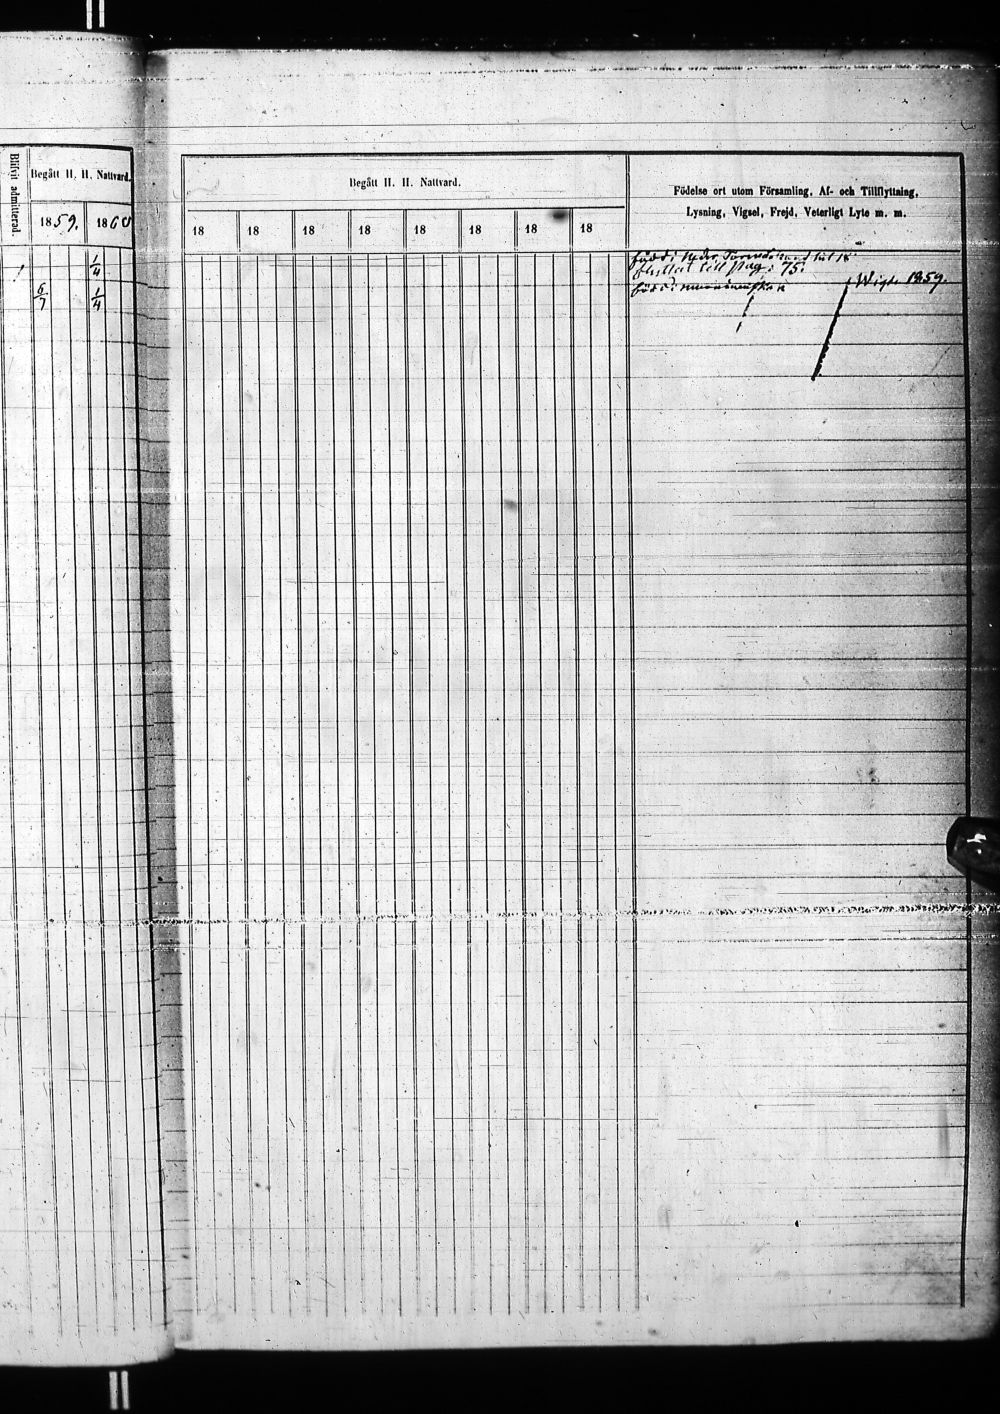 Blifvit admitterad.
Begått H. H. Nattvard.
1859. 1860
1/4
6/7 1/4
Begått H. H. Nattvard.
18 18 18 18 18 18 18 18
Födelse ort utom Församling, Af- och Tillflyttning,
Lysning, Vigsel, Frejd, Veterligt Lyte m. m.
född i Neder
flyttat till pag: 75.
född i Wigd. 1859.